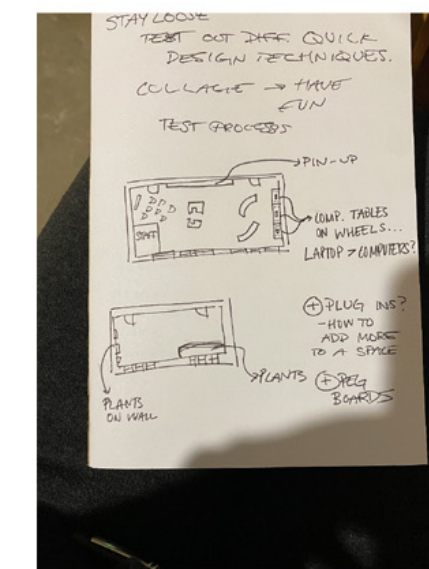 STAY LOOSE
TEST OUT DIFF. QUICK
DESIGN TECHNIQUES.
COLLAGE → HAVE
FUN
TEST PROCESS
PIN-UP
STAFF
COMP. TABLES
ON WHEELS...
LAPTOP > COMPUTERS?
+ PLUG INS?
-HOW TO
ADD MORE
TO A SPACE
PLANTS
+ PEG
BOARDS
PLANTS
ON WALL